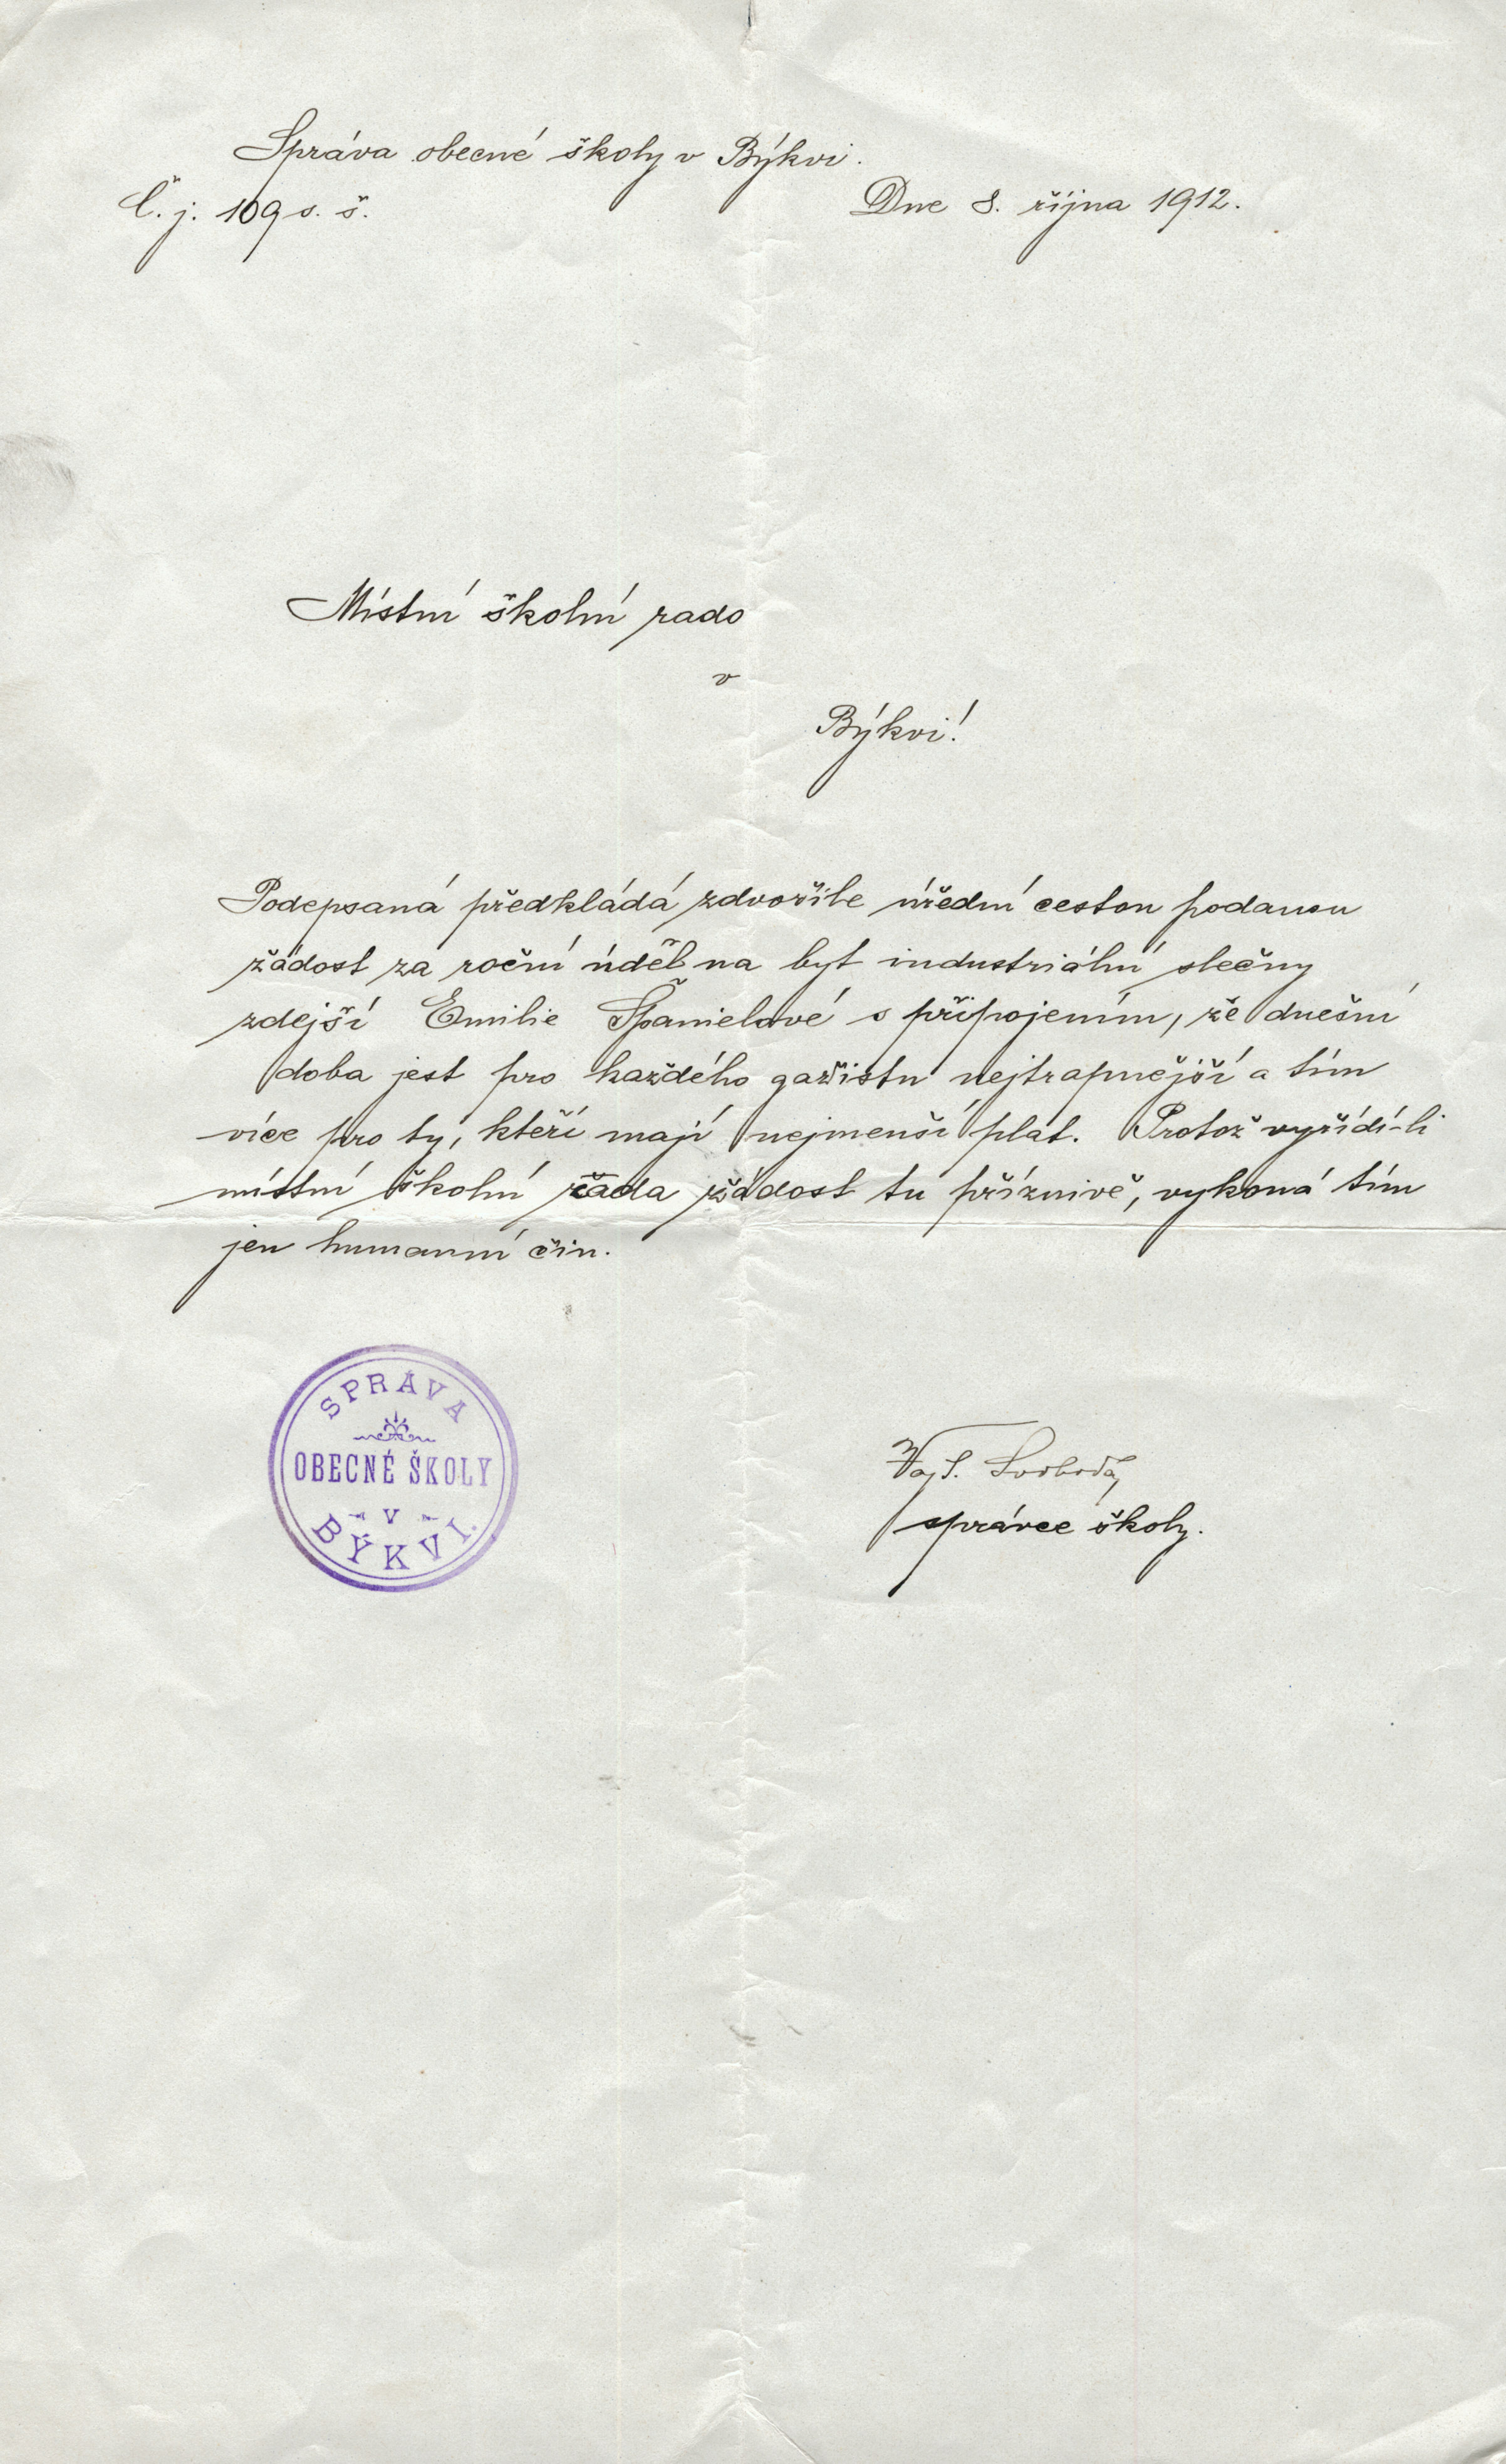 Správa obecné školy v Býkvi.
Č. j. 109 s. š.
Dne 8. října 1912.
Místní školní rado
v
Býkvi!
Podepsaná předkládá zdvořile úřední cestou podanou
žádost za roční úděl na byt industriální slečny
zdejší Emilie Španielové s připojením, že dnešní
doba jest pro každého gažistu nejtrapnější a tím
více pro ty, kteří mají nejmenší plat. Protož vyřídí-li
místní školní rada žádost tu příznivě, vykoná tím
jen humanní čin.
SPRÁVA
OBECNÉ ŠKOLY
V
BÝKVI.
Vojt. Svoboda,
správce školy.